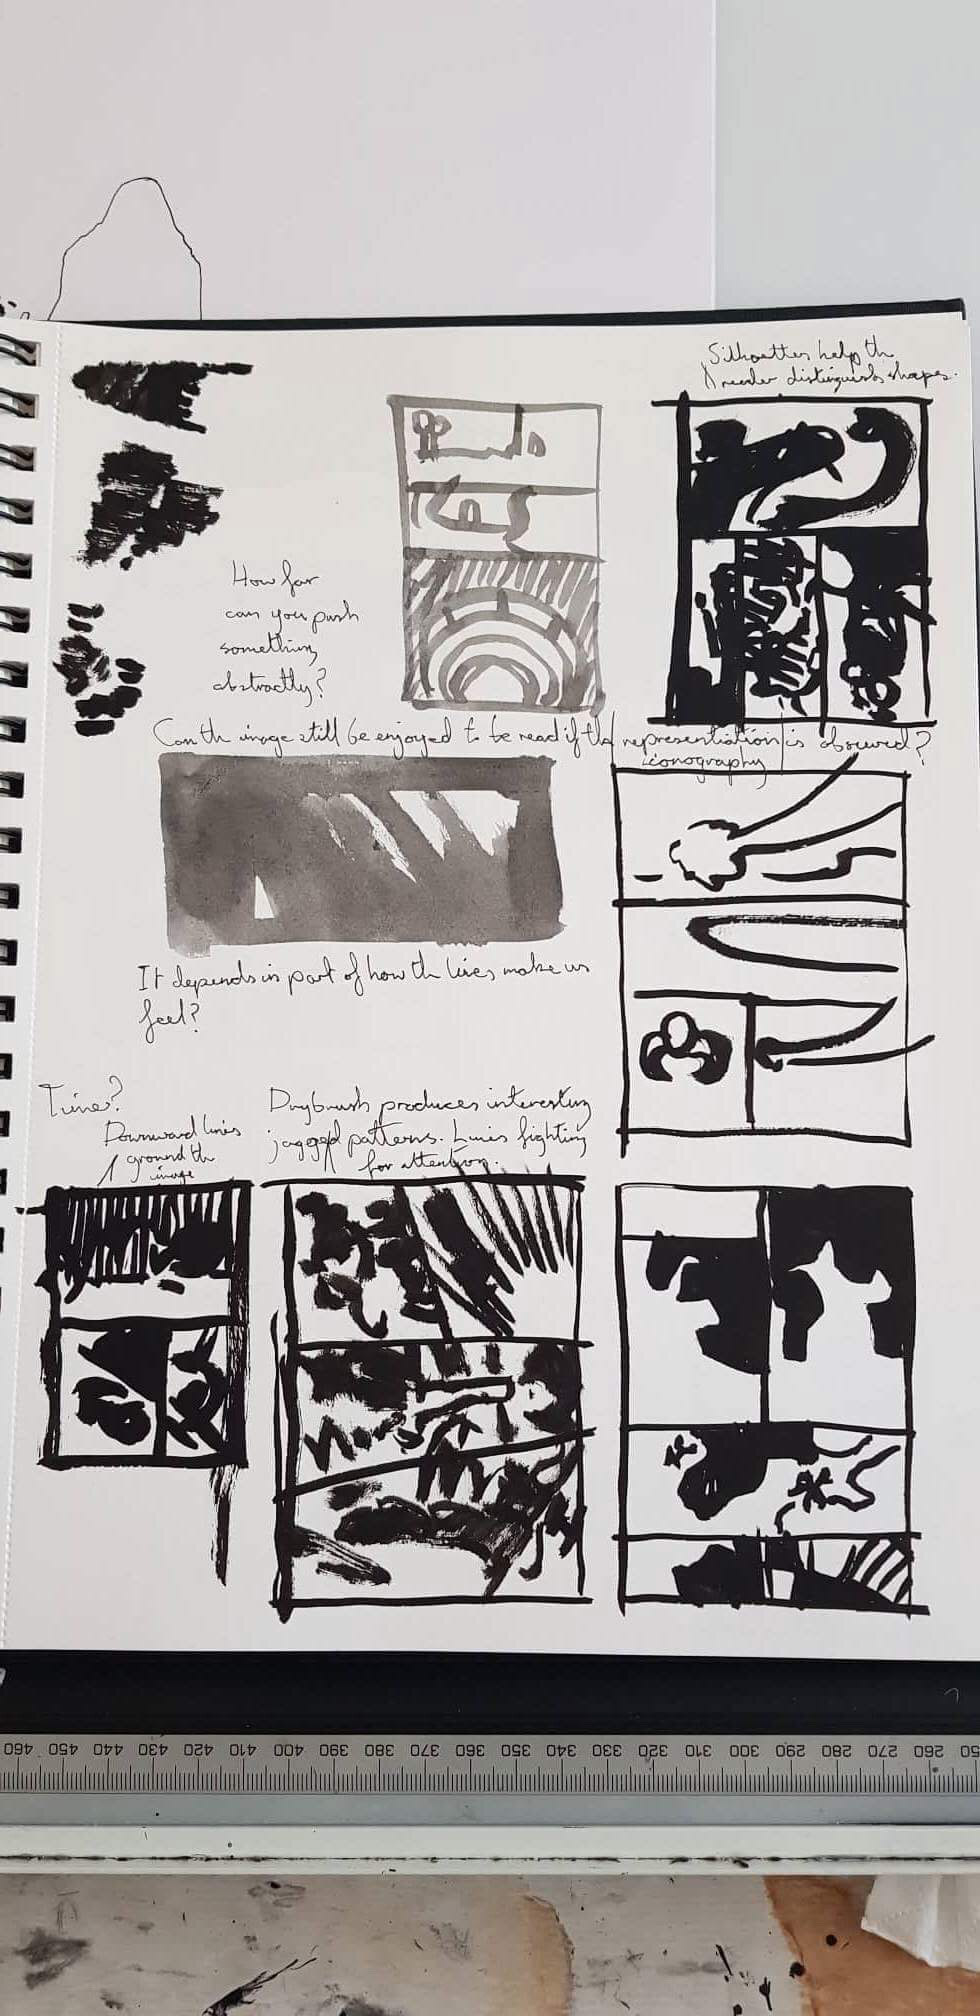 Silhouettes help the
reader distinguish shapes.
How far
can you push
something
abstractly?
Can the image still be enjoyed to be read if the representiation is obscured?
iconography
It depends in part of how the lines make us
feel?
Times?
Downward lines
ground the
image
Drybrush produces interesting
jagged patterns. Lines fighting
for attention.
460 450 440 430 420 410 400 390 380 370 360 350 340 330 320 310 300 290 280 270 260